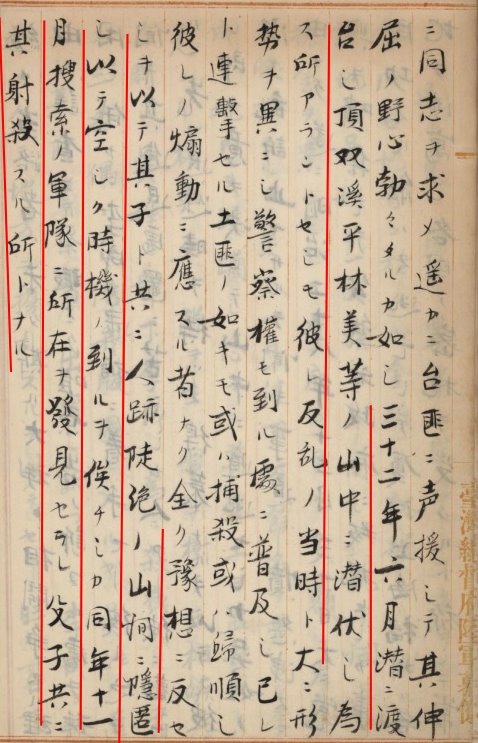 ニ同志ヲ求メ遥カニ台匪ニ声援シテ其伸
屈ノ野心勃々タルカ如シ三十二年六月潜ニ渡
台シ頂双溪平林美等ノ山中ニ潜伏シ為
ス所アラントセシモ彼レ反乱ノ当時ト大ニ形
勢ヲ異ニシ警察権モ到ル處ニ普及シ已レ
ト連セル土匪ノ如キモ或ハ捕殺或ハ歸順シ
彼レノ煽動ニ應スル者ナク全ク豫想ニ反セ
シヲ以テ其子ト共ニ人跡陡絶ノ山間ニ隠匿
シ以テ空シク時機ノ到ルヲ俟チシカ同年十一
月捜索ノ軍隊ニ所在ヲ發見セラレ父子共ニ
其射殺スル所トナル
臺灣總督府陸軍幕僚